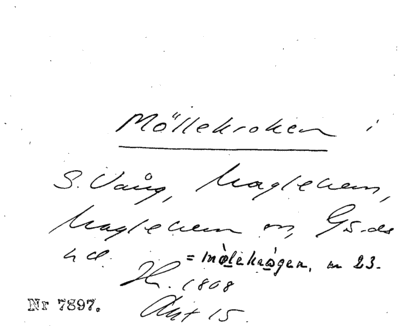 Möllekroken i
S. Vång, Maglehem,
Maglehem sn, Gärds
hd. = mölekrogen, m 23.
1808
Akt 15.
Nr 7897.